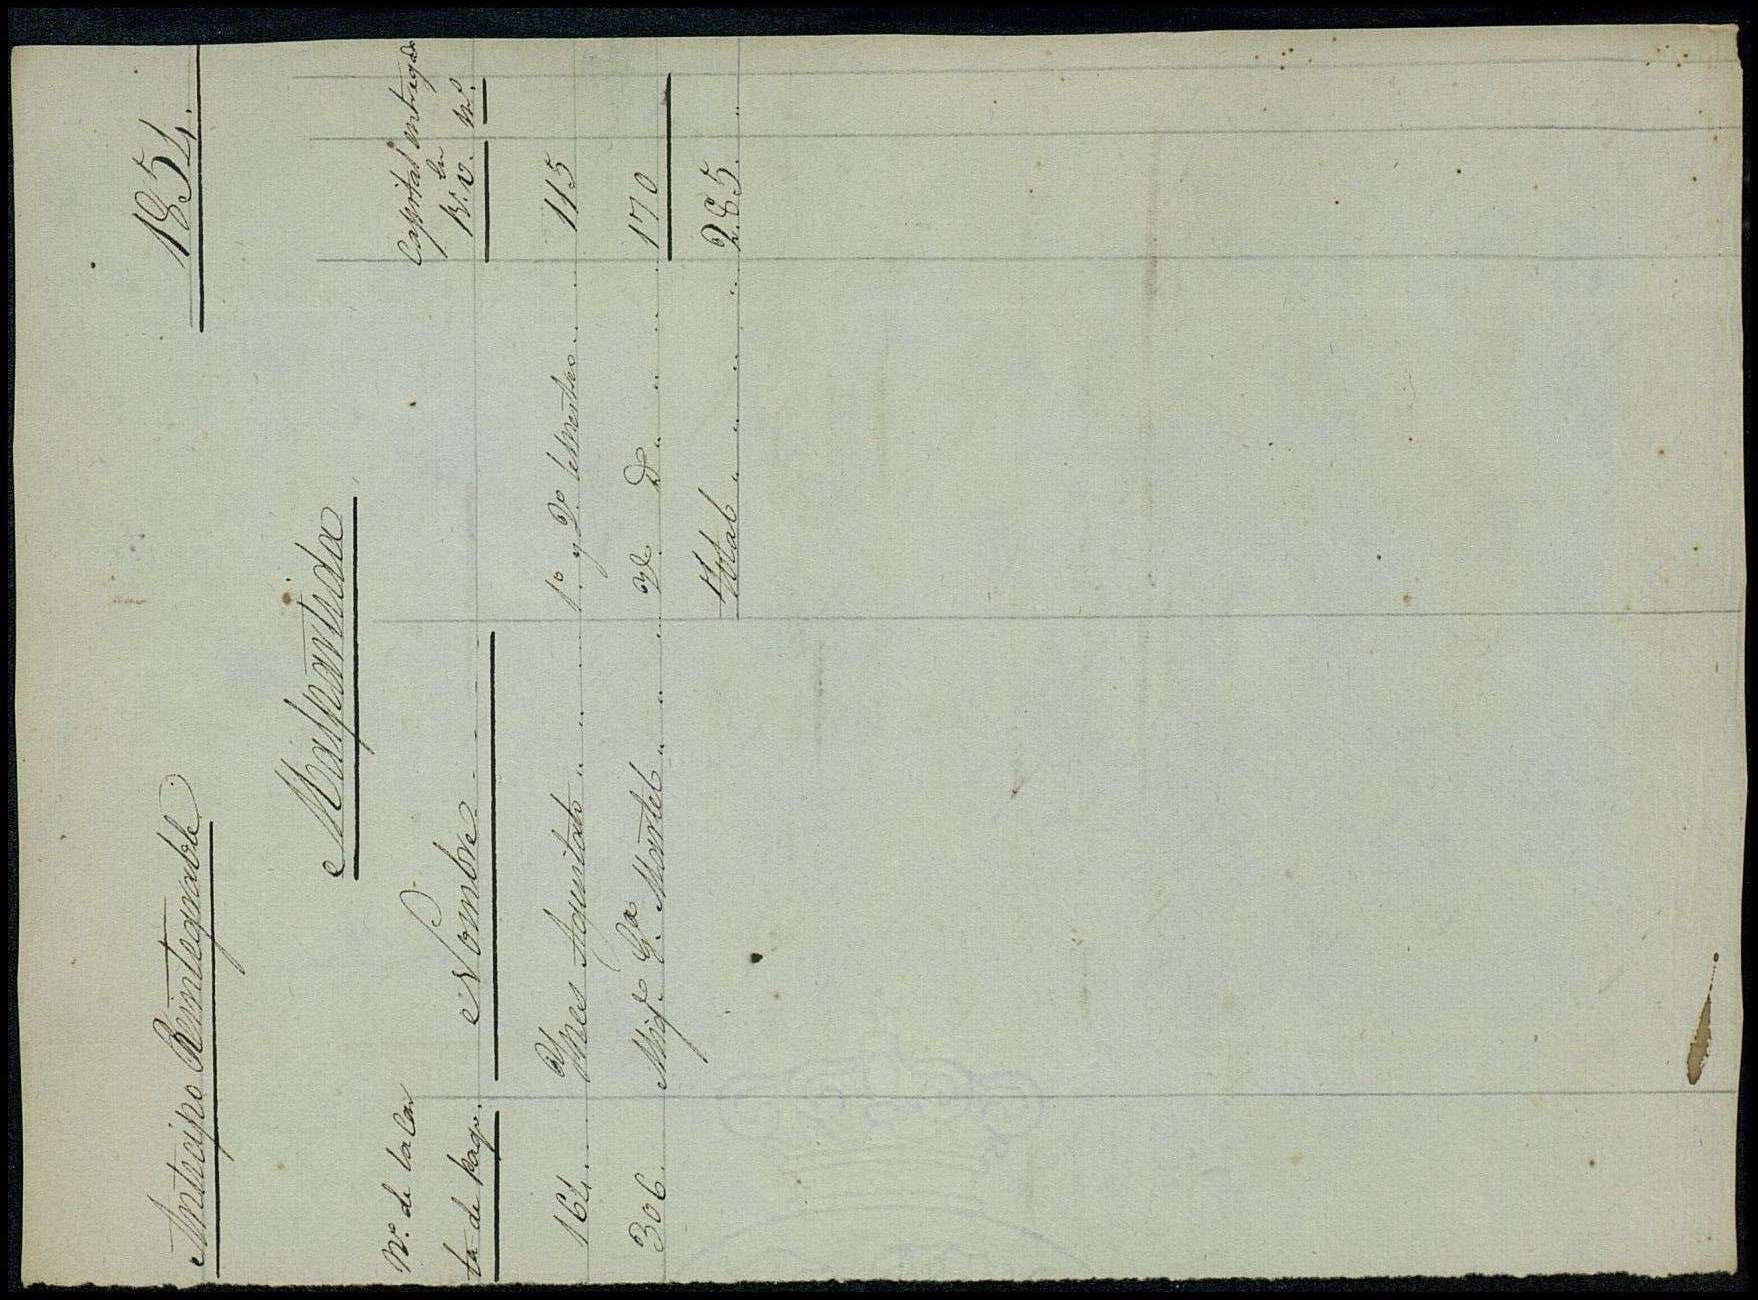 Anticipo Reintegrable 1854.
Maspartida
Nº. de la Car
ta de pago. Nombre Capital entregdo
en
R.s V. Ms.
164 Ynes Aguitato 1º. y 2º. semestre 115
306 Migl. Ga. Martel Yd. Dº 170
Total 285